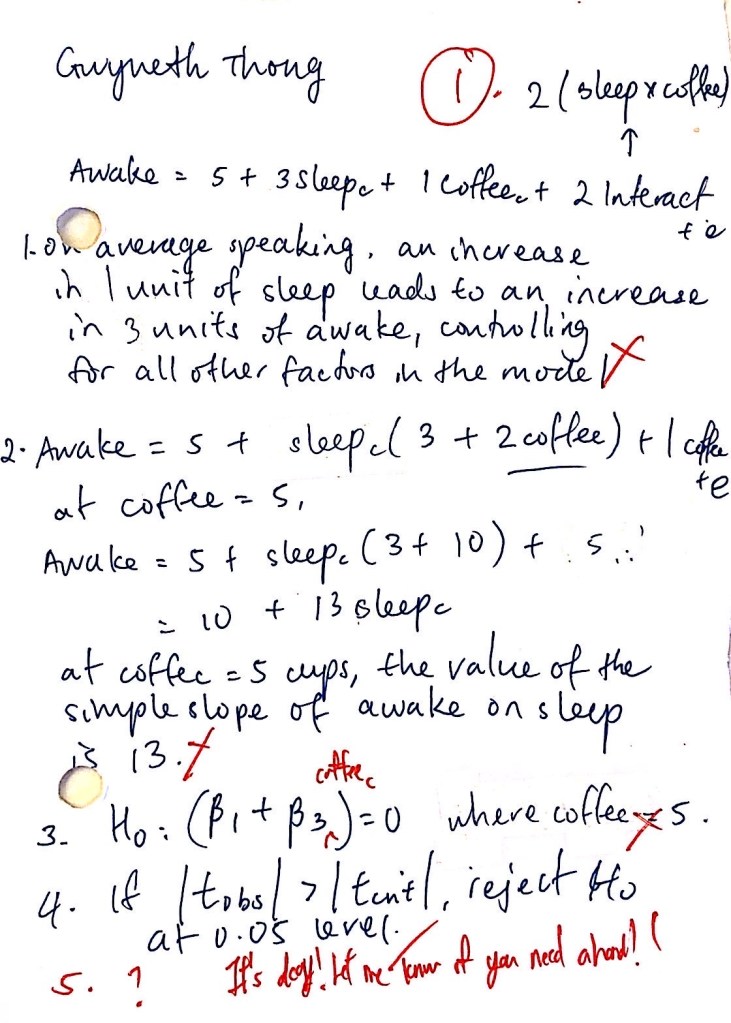 Gwyneth Thong
1.
2 (sleep x coffee)
↑
Awake = 5 + 3 sleepc + 1 coffeec + 2 Interact
+ e
1. on average speaking, an increase
in 1 unit of sleep leads to an increase
in 3 units of awake, controlling
for all other factors in the model X
2. Awake = 5 + sleepc ( 3 + 2 coffee) + 1 coffee
+ e
at coffee = 5,
Awake = 5 + sleepc (3 + 10) + 5
= 10 + 13 sleepc
at coffee = 5 cups, the value of the
simple slope of awake on sleep
is 13. X
coffeec
3. Ho: (β1 + β3) = 0 where coffee = 5.
4. If |tobs| > |tcrit|, reject Ho
at 0.05 level.
5. ? It's okay! Let me know if you need a hand!